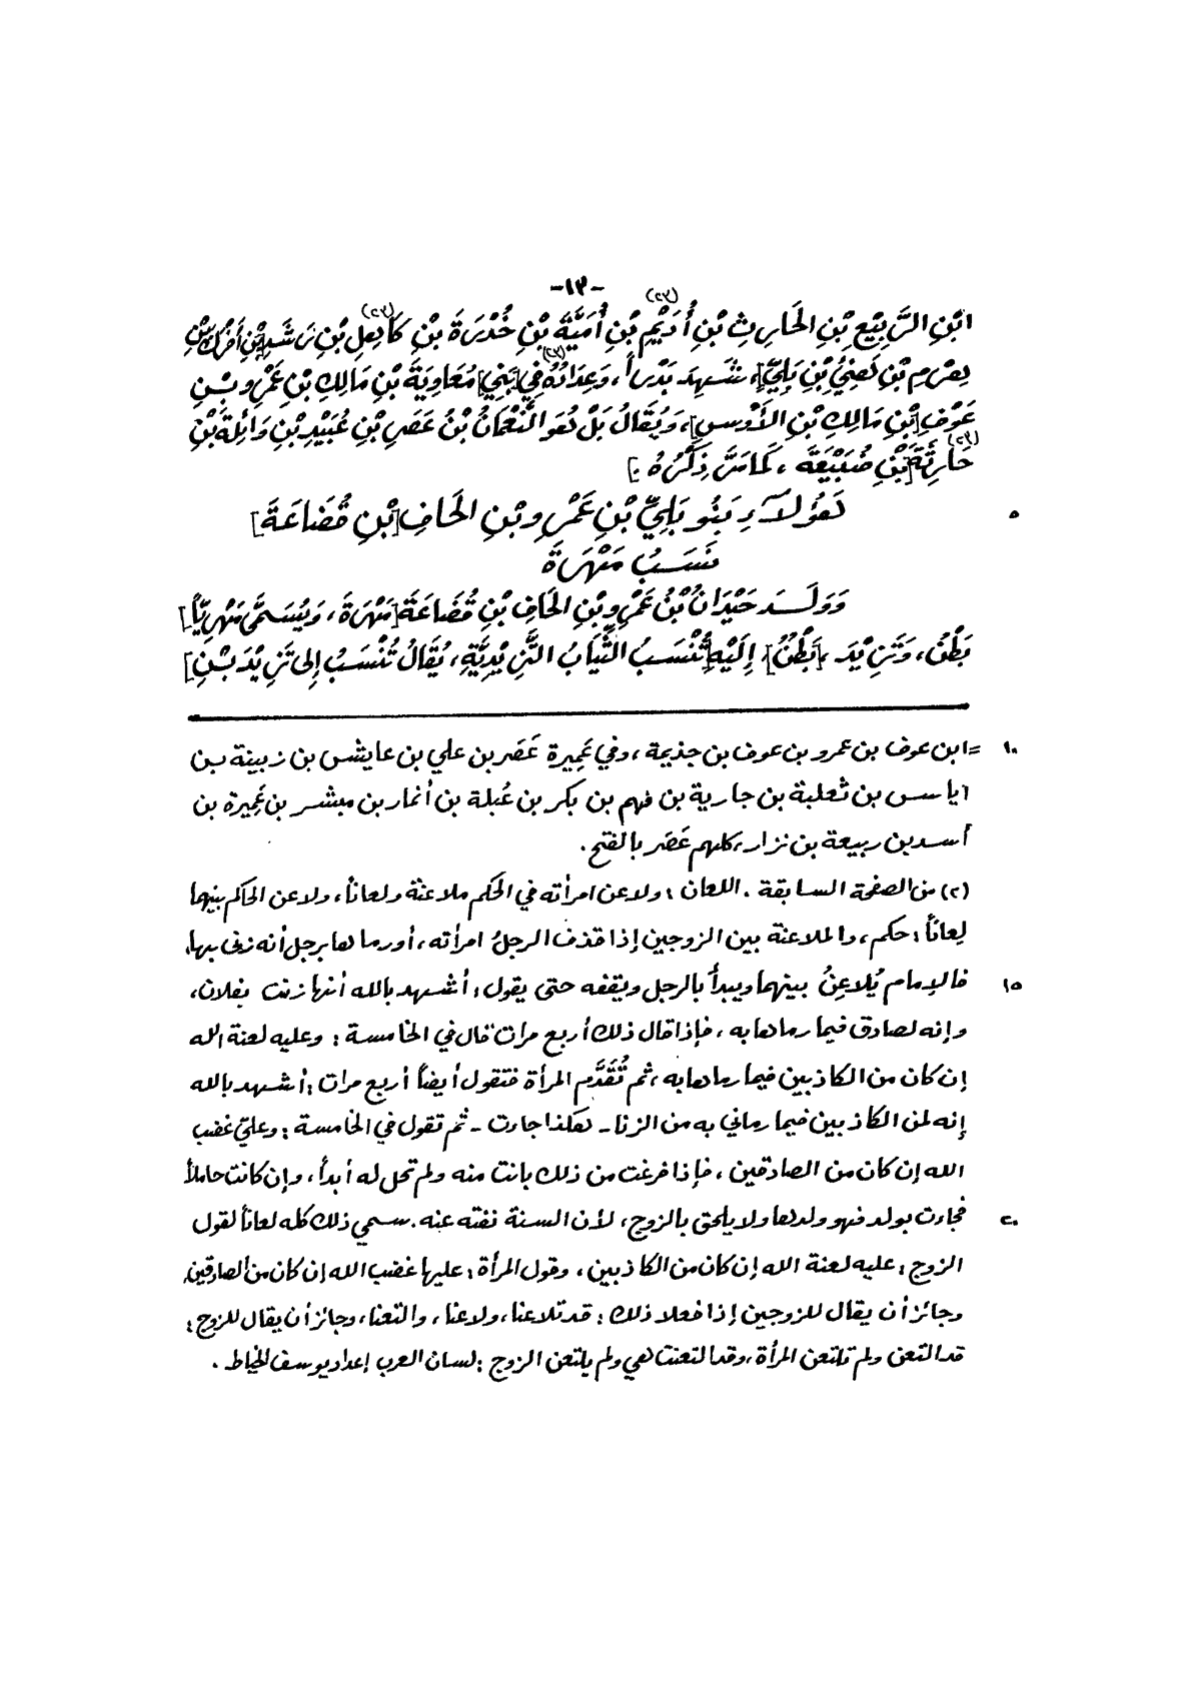 -١٣-
ابْنِ الرَّبِيْعِ بْنِ الحَارِثِ بْنِ أُدَيْمِ (٢٣) بْنِ أُمَيَّةَ بْنِ خُدْرَةَ بْنِ كَاهِلِ (٢٣) بْنِ رَشَدِ [بْنِ أَفْرَكَ بْنِ
هِرْمِ بْنِ هَنِيْءِ بْنِ بَلِيّ]، شَهِدَ بَدْراً، وَعِدَادُهُ (٢٣) فِي [بَنِي] مُعَاوِيَةَ بْنِ مَالِكِ بْنِ عَمْرِو بْنِ
عَوْفِ [بْنِ مَالِكِ بْنِ الأَوْسِ]، وَيُقَالُ بَلْ هُوَ النُّعْمَانُ بْنُ عَصَرِ بْنِ عُبَيْدِ بْنِ وَائِلَةَ بْنِ
حَارِثَةَ (٢٣) [بْنِ ضُبَيْعَةَ، كَمَا مَرَّ ذِكْرُهُ.]
هَؤُلاَءِ بَنُو بَلِيِّ بْنِ عَمْرِو بْنِ الحَافِ [بْنِ قُضَاعَةَ]
٥
نَسَبُ مَهْرَةَ
وَوَلَدَ حَيْدَانُ بْنُ عَمْرِو بْنِ الحَافِ بْنِ قُضَاعَةَ [مَهْرَةَ، وَيُسَمَّى مَهْرِيّاً]
بَطْنُ، وَتَزِيْدَ، [بَطْنُ]. إِلَيْهِ [تُنْسَبُ الثِّيَابُ التَّزِيْدِيَّةِ، يُقَالُ تُنْسَبُ إِلى تَزِيْدَ بْنِ]
١٠ =ابن عوف بن عمرو بن عوف بن جذيمة، وفي عَمِيرة عَصَر بن علي بن عايش بن زبينة بن
اياس بن ثعلبة بن جارية بن فهم بن بكر بن عُبلة بن أنمار بن مبشر بن عَمِيرة بن
أسد بن ربيعة بن نزار، كلهم عَصَر بالفتح.
(٢) من الصفحة السابقة. اللعان: ولاعن امرأته في الحكم ملاعنة ولعاناً، ولاعن الحاكم بينهما
لِعاناً: حكم، والملاعنة بين الزوجين إذا قذف الرجلُ امرأته، أو رماها برجل أنه زنى بها،
١٥ فالإمام يُلاعِنُ بينهما ويبدأ بالرجل ويقفه حتى يقول: أشهد بالله أنها زنت بفلان،
وإنه لصادق فيما رماها به، فإذا قال ذلك أربع مرات قال في الخامسة: وعليه لعنة الله
إن كان من الكاذبين فيما رماها به، ثم تُقَدَّم المرأة فتقول أيضاً أربع مرات: أشهد بالله
إنه لمن الكاذبين فيما رماني به من الزنا - هكذا جاءت - ثم تقول في الخامسة: وعليّ غضب
الله إن كان من الصادقين، فإذا فرغت من ذلك بانت منه ولم تحل له أبداً، وإن كانت حاملاً
٢٠ فجاءت بولد فهو ولدها ولا يلحق بالزوج، لأن السنة نفته عنه. سمي ذلك كله لعاناً لقول
الزوج: عليه لعنة الله إن كان من الكاذبين، وقول المرأة: عليها غضب الله إن كان من الصادقين،
وجائز أن يقال للزوجين إذا فعلا ذلك: قد تلاعنا، ولاعنا، والتعنا، وجائز أن يقال للزوج:
قد التعن ولم تلتعن المرأة، وقد التعنت هي ولم يلتعن الزوج: لسان العرب إعداد يوسف الخياط.